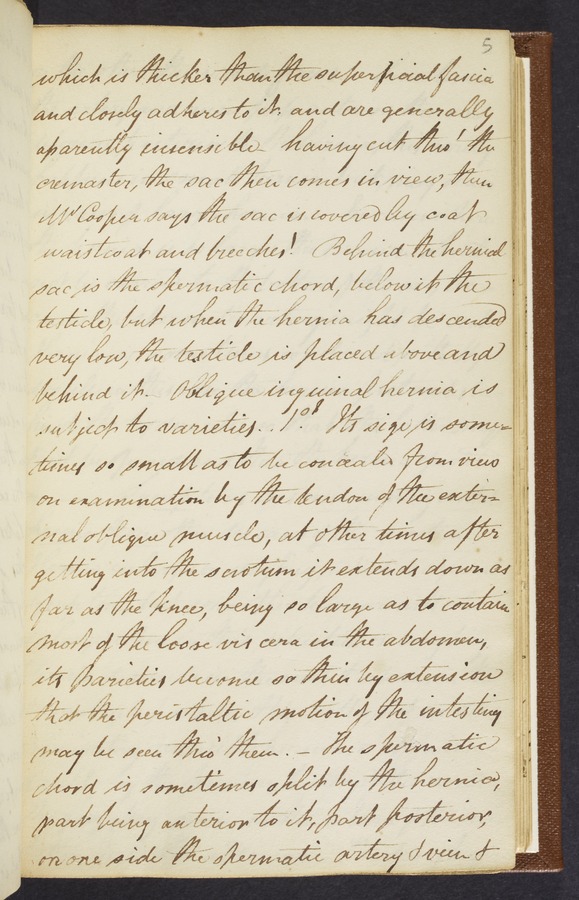 5
which is thicker than the superficial fascia
and closely adheres to it and are generally
aparently insensible having cut thro' the
cremaster, the sac then comes in view, then
Mr Cooper says the sac is covered by coat
waistcoat and breeches! Behind the hernial
sac is the spermatic chord, below it the
testicle, but when the hernia has descended
very low, the testicle is placed above and
behind it. Oblique inguinal hernia is
subject to varieties. 1st. Its size is some=
times so small as to be conceald from view
on examination by the tendon of the exter=
nal oblique muscle, at other times after
getting into the scrotum it extends down as
far as the knee, being so large as to contain
most of the loose viscera in the abdomen,
its parieties become so thin by extension
that the peristaltic motion of the intestines
may be seen thro' them. – The spermatic
chord is sometimes split by the hernia,
part being anterior to it, part posterior,
on one side the spermatic artery & vein &